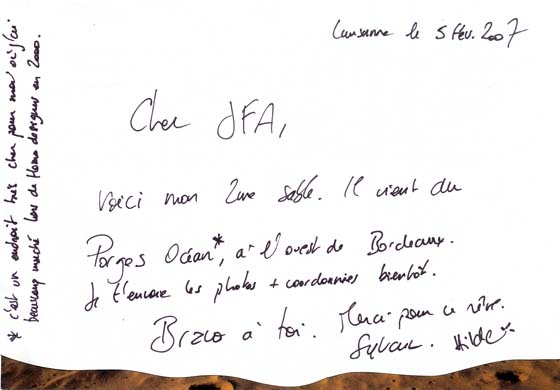 Lausanne le 5 fév. 2007
Cher JFA,
Voici mon 2ème sable. Il vient du
Porges Océan*, à l'ouest de Bordeaux.
Je t'envoie les photos + coordonnées bientôt.
Bravo à toi. Merci pour ce rêve.
Sylvain.
* c'est un endroit très cher pour moi où j'ai
beaucoup marché lors de
en 2000.